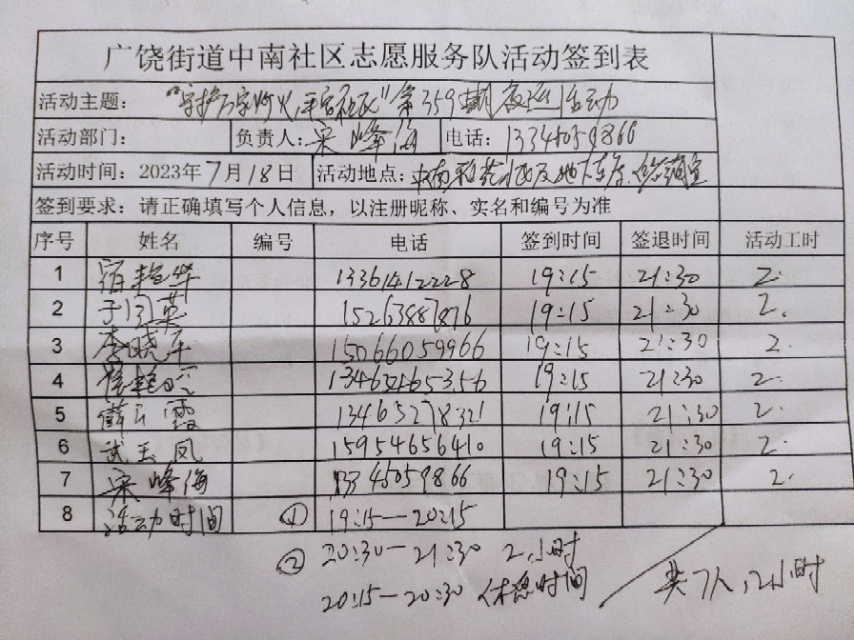 广饶街道中南社区志愿服务队活动签到表
活动主题：“守护万家灯火，平安社区”第359期夜巡活动
活动部门： 负责人：宋峰海 电话：13345059866
活动时间：2023年7月18日 活动地点：中南 社区地下车库、
签到要求：请正确填写个人信息，以注册昵称、实名和编号为准
序号 姓名 编号 电话 签到时间 签退时间 活动工时
1 13361412228 19:15 21:30 2.
2 于闫英 15263887876 19:15 21:30 2.
3 李晓军 15066059966 19:15 21:30 2.
4 19:15 21:30 2.
5 薛 霞 13465278321 19:15 21:30 2.
6 武玉凤 15954656410 19:15 21:30 2.
7 宋峰海 13345059866 19:15 21:30 2.
8 活动时间 ① 19:15—20:15
② 20:30—21:30 2小时
20:15—20:30 休息时间
共7人，2小时